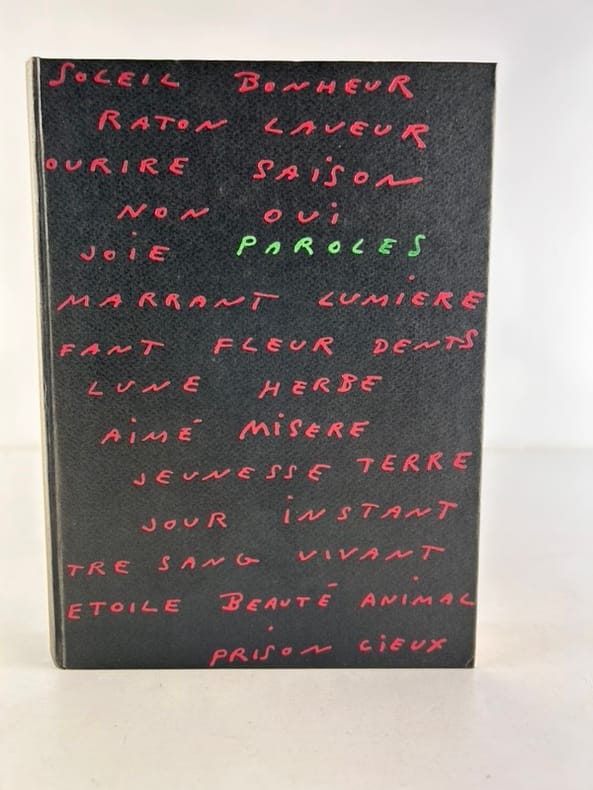 SOLEIL BONHEUR
RATON LAVEUR
OURIRE SAISON
NON OUI
JOIE PAROLES
MARRANT LUMIERE
FANT FLEUR DENTS
LUNE HERBE
AIMÉ MISERE
JEUNESSE TERRE
JOUR INSTANT
TRE SANG VIVANT
ETOILE BEAUTÉ ANIMAL
PRISON CIEUX